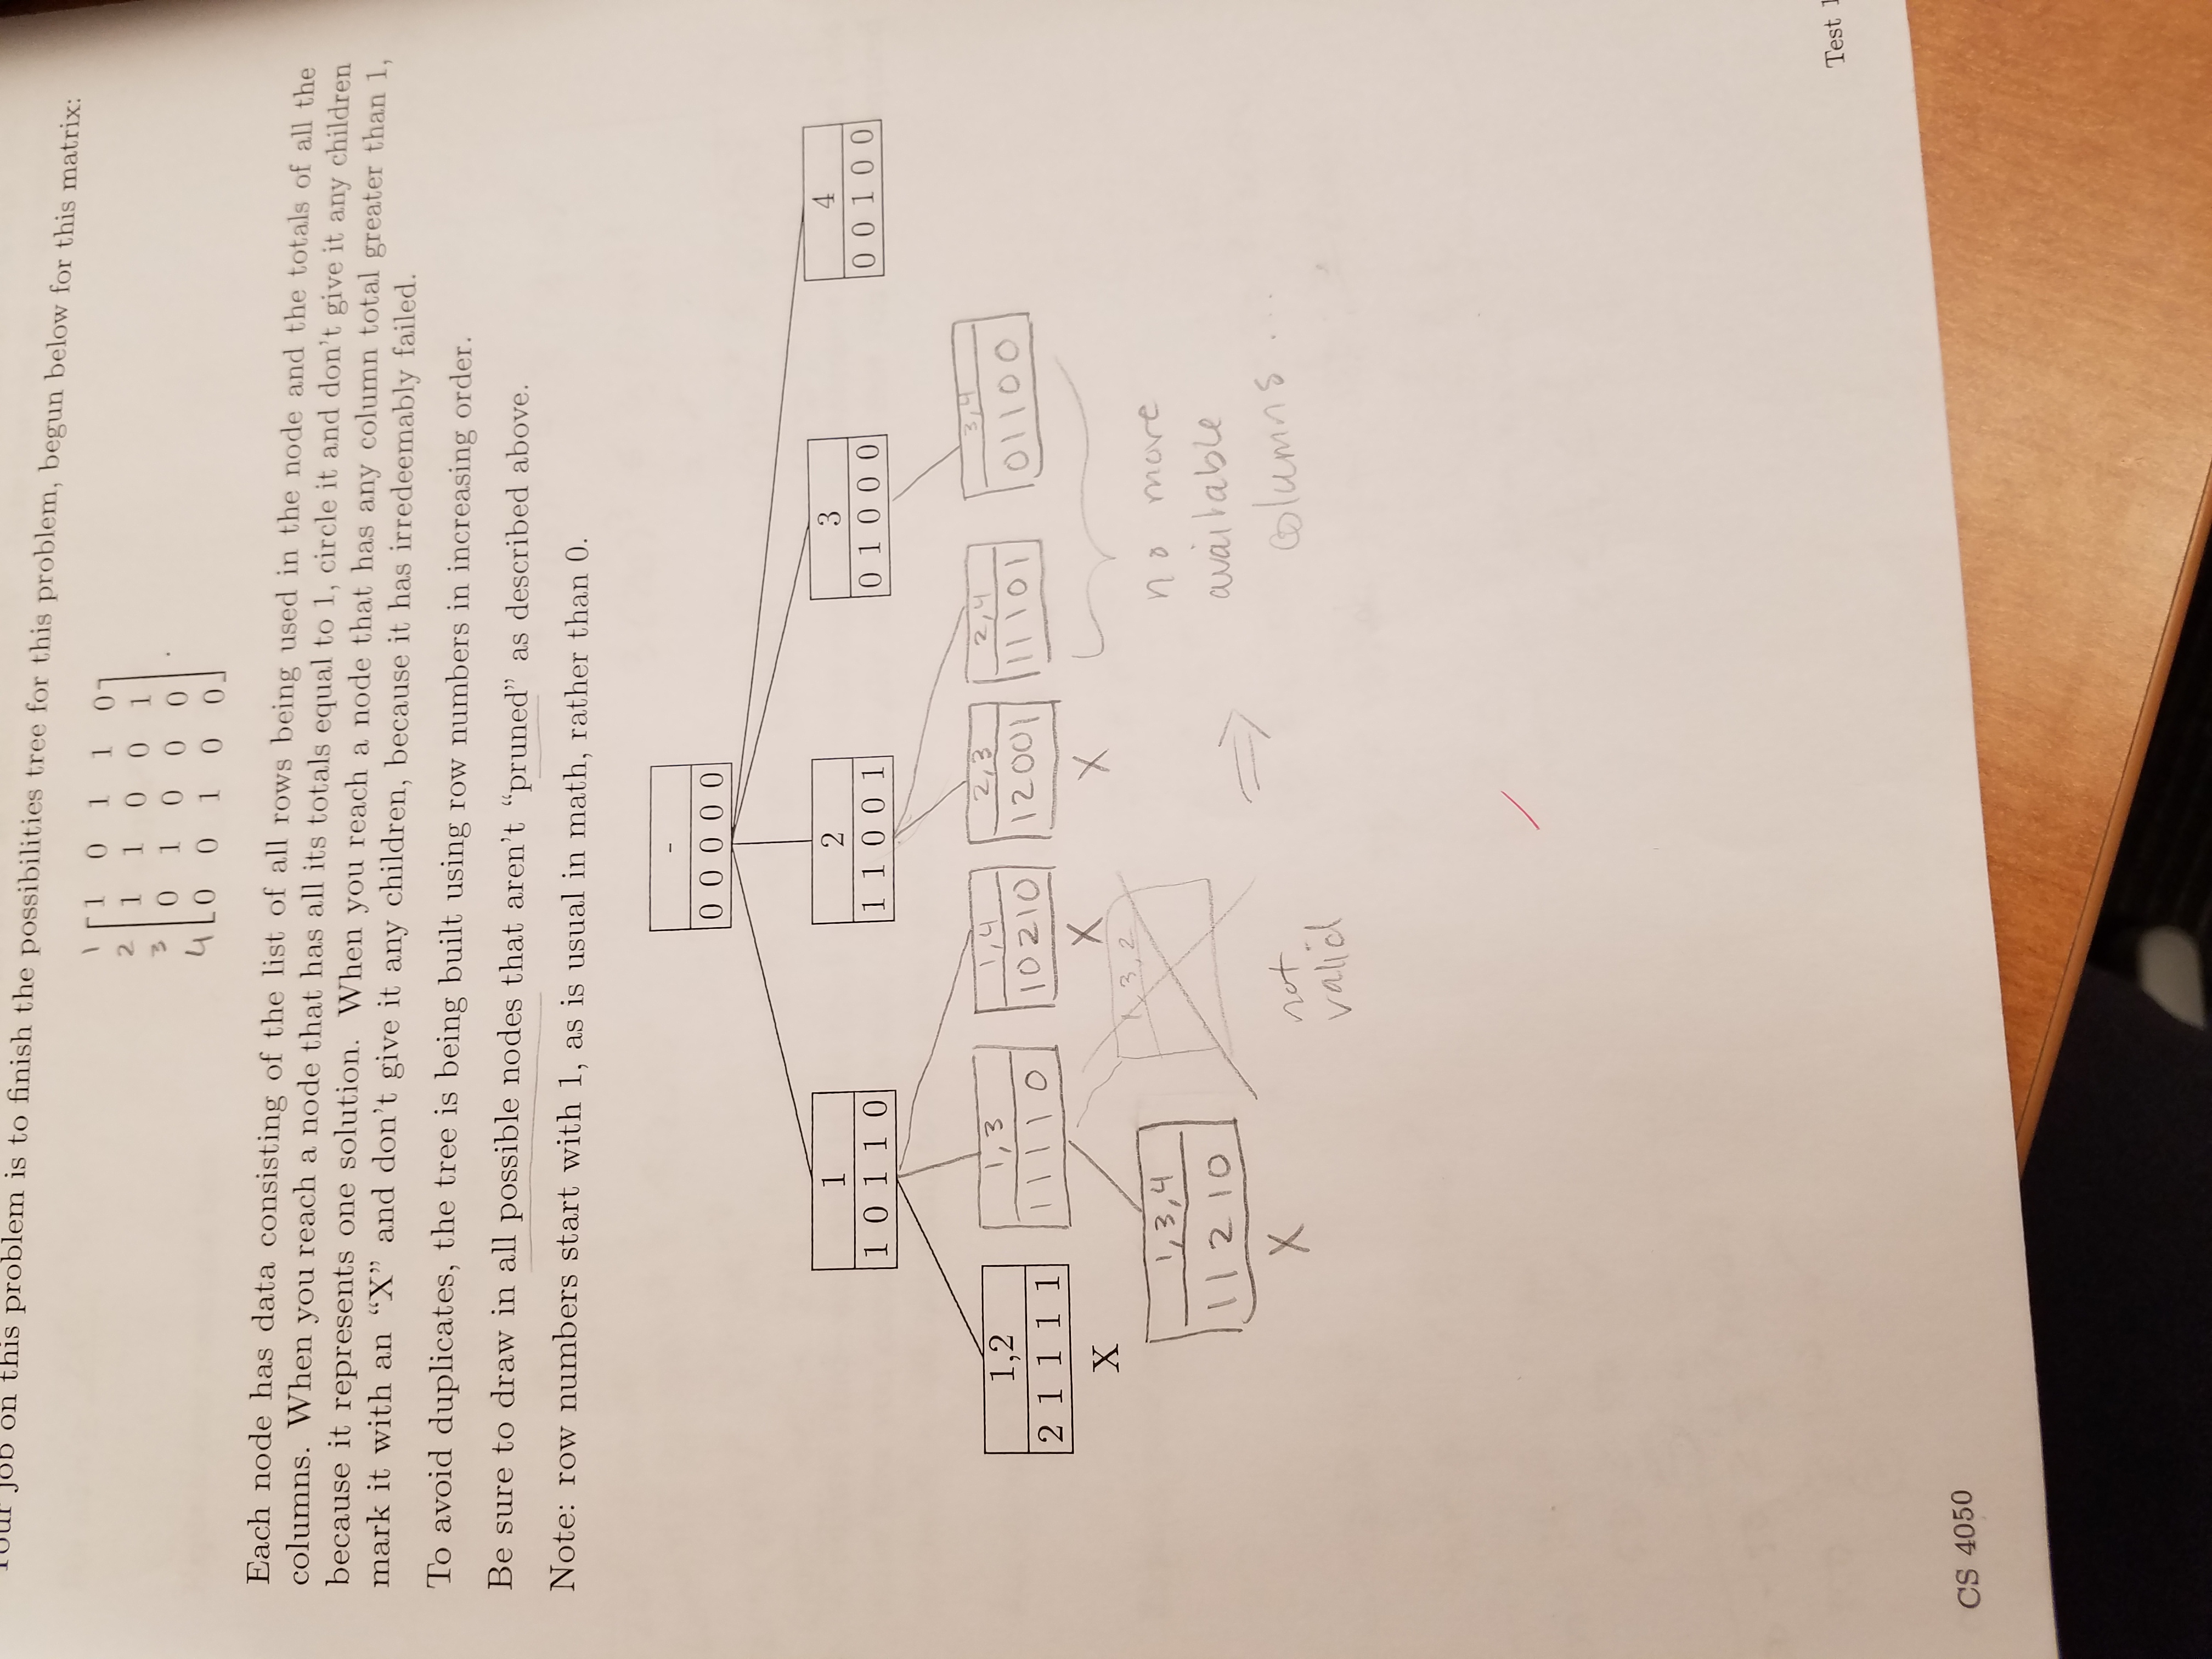 Your job on this problem is to finish the possibilities tree for this problem, begun below for this matrix:
1 1 0 1 1 0
2 1 1 0 0 1
3 0 1 0 0 0
4 0 0 1 0 0
.
Each node has data consisting of the list of all rows being used in the node and the totals of all the
columns. When you reach a node that has all its totals equal to 1, circle it and don't give it any children
because it represents one solution. When you reach a node that has any column total greater than 1,
mark it with an “X” and don't give it any children, because it has irredeemably failed.
To avoid duplicates, the tree is being built using row numbers in increasing order.
Be sure to draw in all possible nodes that aren't “pruned” as described above.
Note: row numbers start with 1, as is usual in math, rather than 0.
-
0 0 0 0 0
1 2 3 4
1 0 1 1 0 1 1 0 0 1 0 1 0 0 0 0 0 1 0 0
1,2 1,3 1,4 2,3 2,4 3,4
2 1 1 1 1 1 1 1 1 0 1 0 2 1 0 1 2 0 0 1 1 1 1 0 1 0 1 1 0 0
X X X
1,3,4 1,3,2
1 1 2 1 0
X
not
valid
⇒
no more
available
columns ...
Test 1
CS 4050